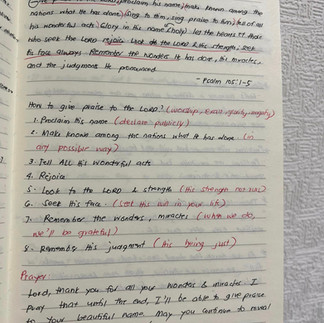 the LORD, proclaim his name; make known among the
nations what he has done. Sing to him, sing praise to him; tell of all
his wonderful acts. Glory in his name (holy) let the hearts of those
who seek the LORD rejoice. Look to the LORD & his strength; seek
his face always. Remember the wonders he has done, his miracles,
and the judgments he pronounced.
- Psalm 105:1-5
How to give praise to the LORD? (worship,
1. Proclaim his name (declare publicly)
2. Make known among the nations what He has done (in
any possible way)
3. Tell ALL His wonderful acts
4. Rejoice
5. Look to the LORD & strength (His strength not ours)
6. Seek His face (seek His will in your life)
7. Remember the wonders, miracles (when we do,
we'll be grateful)
8. Remember His judgment (His being just)
Prayer
Lord, thank you for all your wonders & miracles. I
pray that until the end, I'll be able to give praise
to Your beautiful name. May you continue to reveal